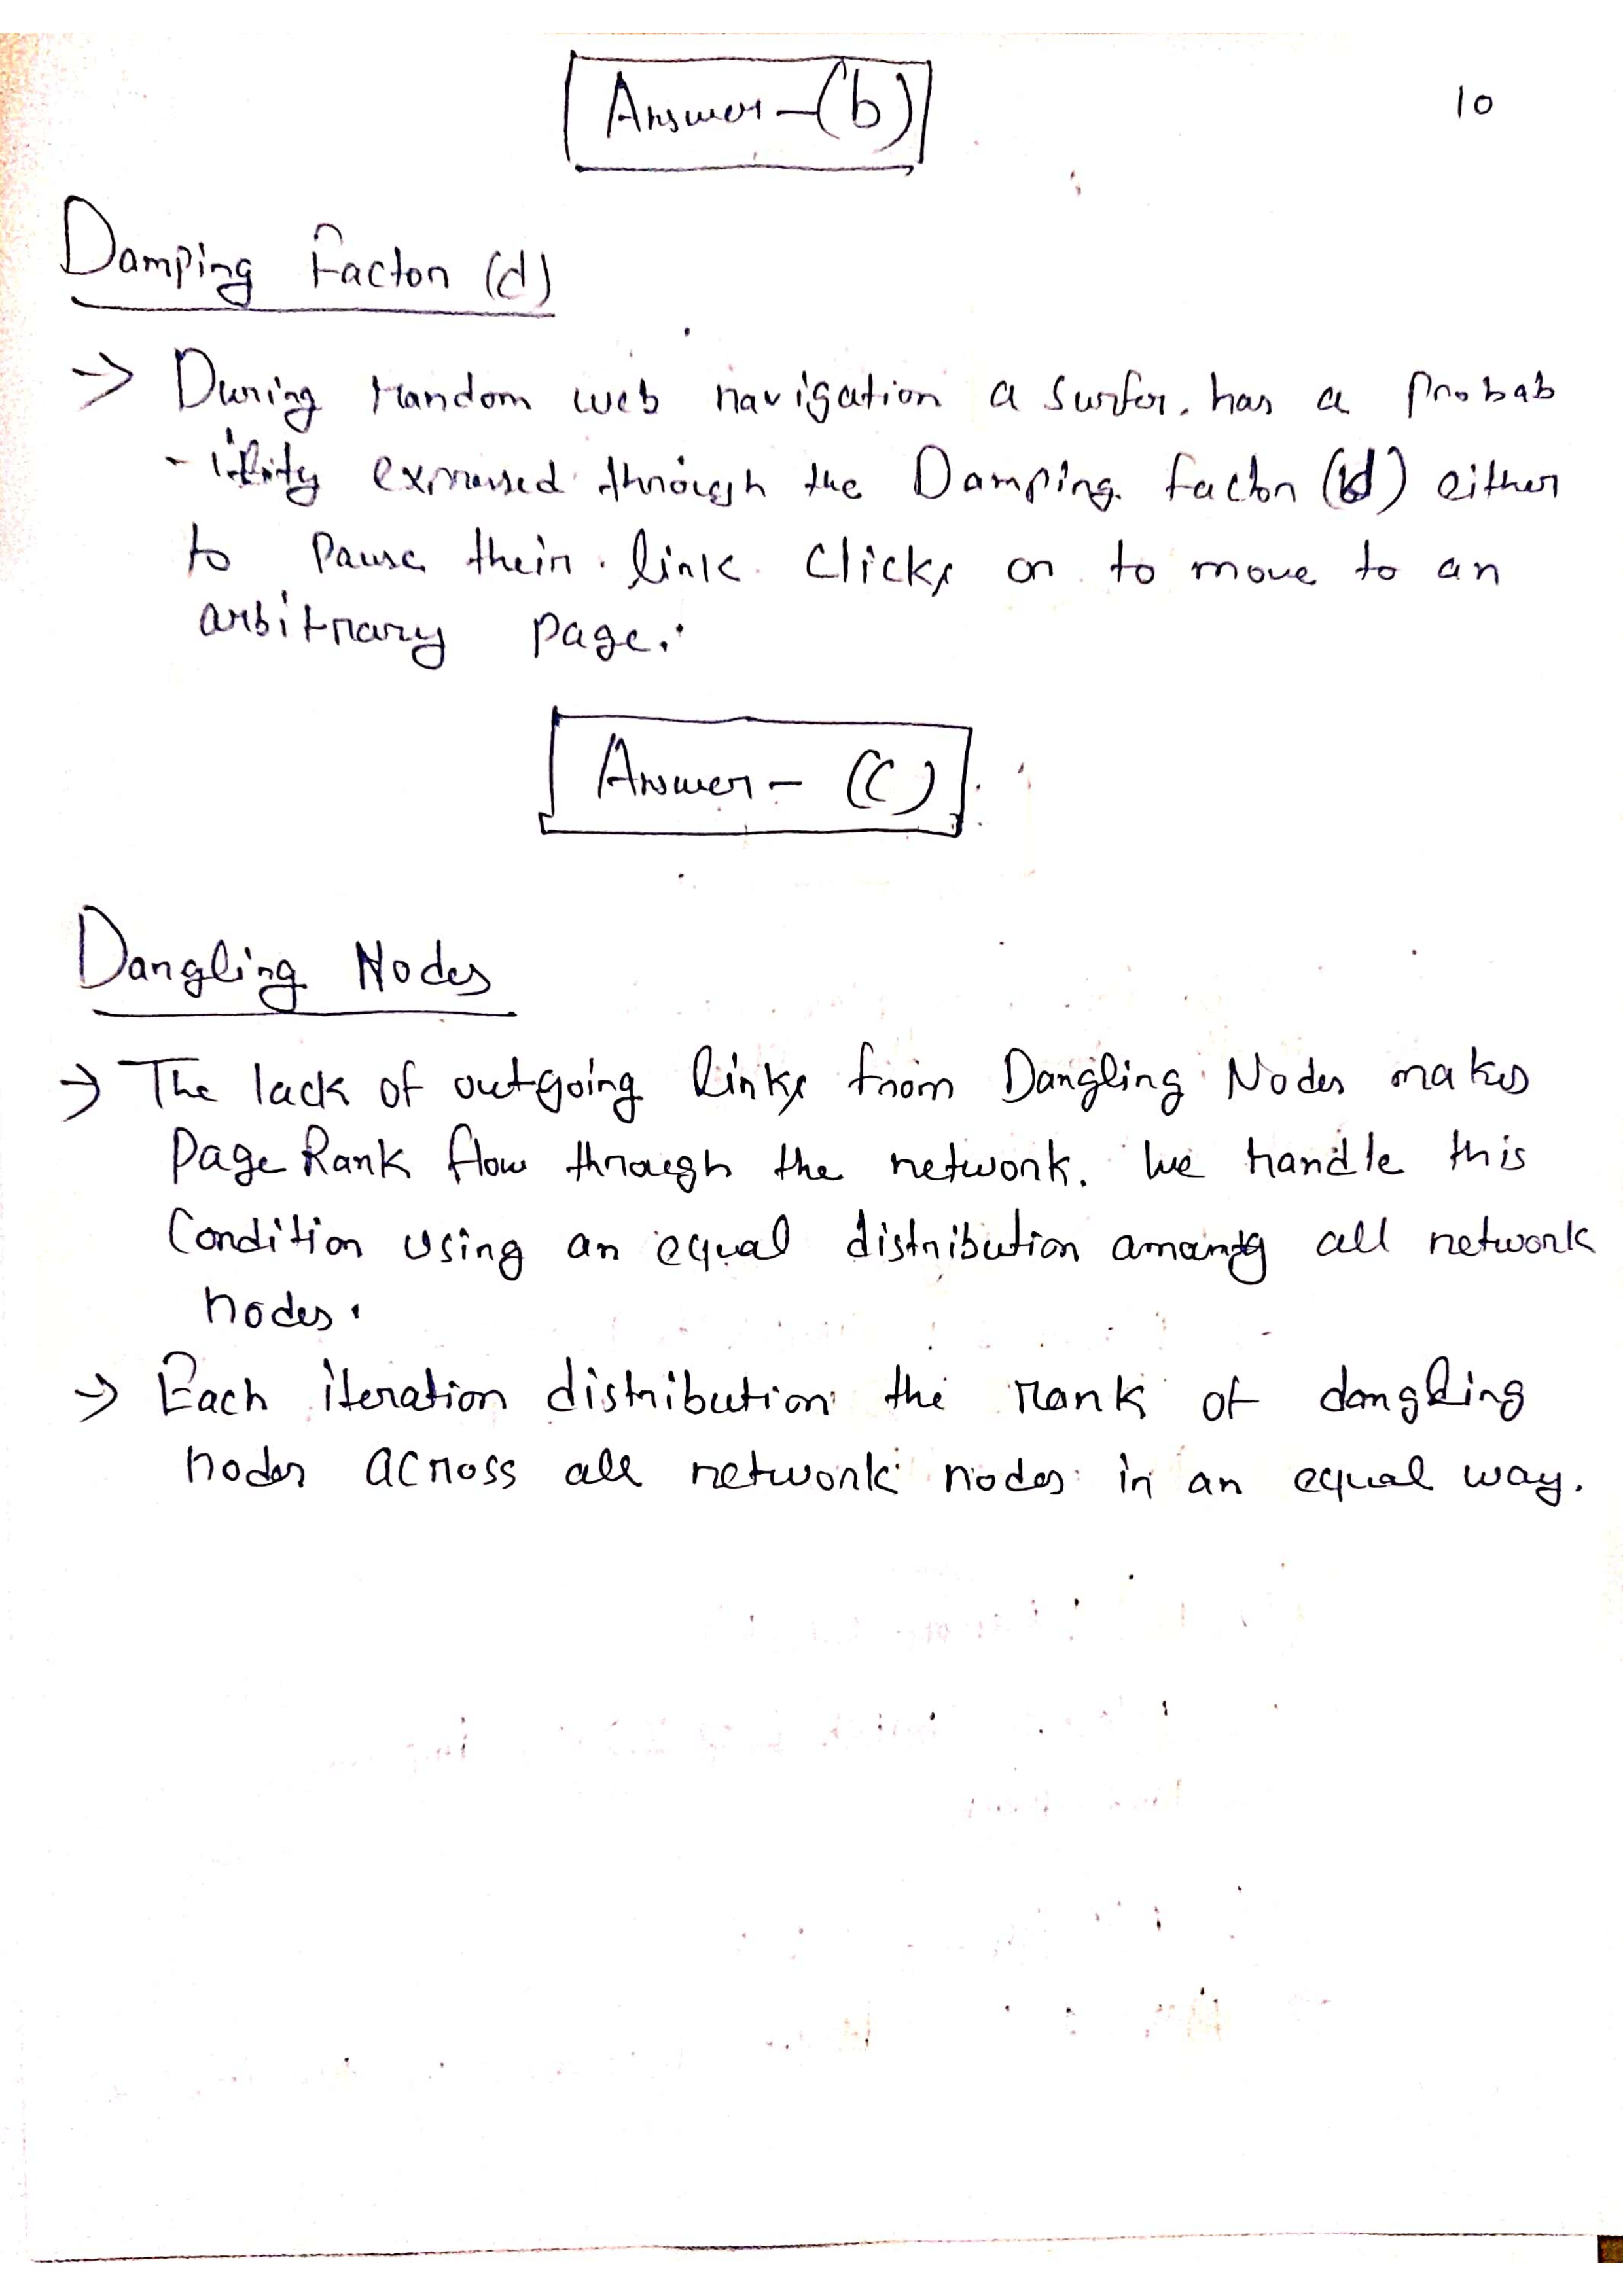 Answer-(b)
10
Damping Factor (d)
→ During random web navigation a surfer has a Probab
-ility expressed through the Damping factor (d) either
to Pause their link Clicks or to move to an
arbitrary page.
Answer- (C)
Dangling Nodes
→ The lack of outgoing links from Dangling Nodes makes
Page Rank flow through the network. We handle this
Condition using an equal distribution among all network
nodes.
→ Each iteration distribution the rank of dangling
nodes across all network nodes in an equal way.